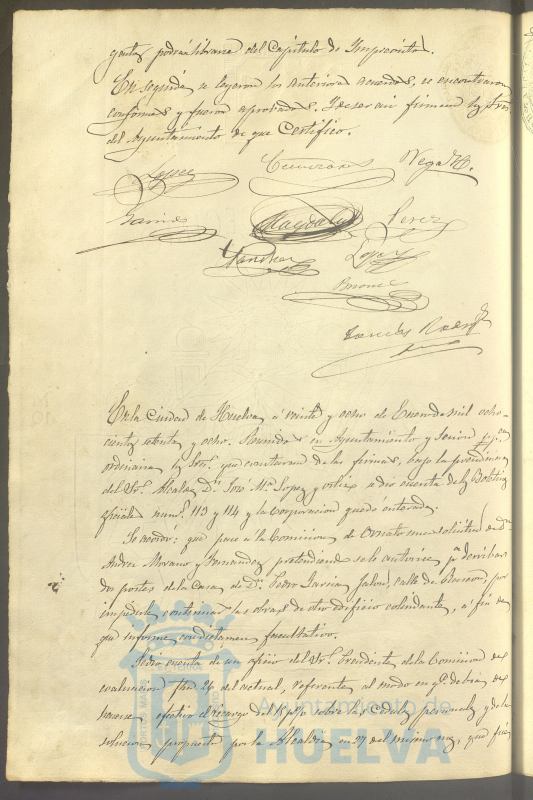 gastos podrán librarse del Capítulo de Imprevistos.
En seguida se leyeron los anteriores acuerdos, se encontraron
conformes y fueron aprobados. Y de ser así firman los Sres.
del Ayuntamiento de que Certifico.
Lopez Vega
Garrido Magdalena Perez
Lopez
En la Ciudad de Huelva, a veinte y ocho de Enero de mil ocho-
cientos setenta y ocho. Reunidos en Ayuntamiento y sesion pp.ca
ordinaria los Sres. que constaran de las firmas, bajo la presidencia
del Sr. Alcalde Dn. José Ma. Lopez y Ortiz se dio cuenta de los Boletines
oficiales num.s 113 y 114 y la Corporacion quedó enterada.
Se acordó: que pase a la Comision de Ornato una solicitud de Dn.
Andres Moreno y Fernandez pretendiendo se le autorice pa. derribar
dos postes de la Casa de Dn. Pedro Garcia Jalon, calle de Rascon, por
impedirle continuar las obras de otro edificio colindante, a fin de
que informe con dictamen facultativo.
Se dio cuenta de un oficio del Sr. Presidente de la Comision de
evaluacion fha. 24 del actual, referente al modo en qe. debia de
hacerse efectivo el recargo del p% sobre las cedulas personales y de la
solucion propuesta por la Alcaldia en 27 del mismo mes, que fué
Ayuntamiento de
HUELVA